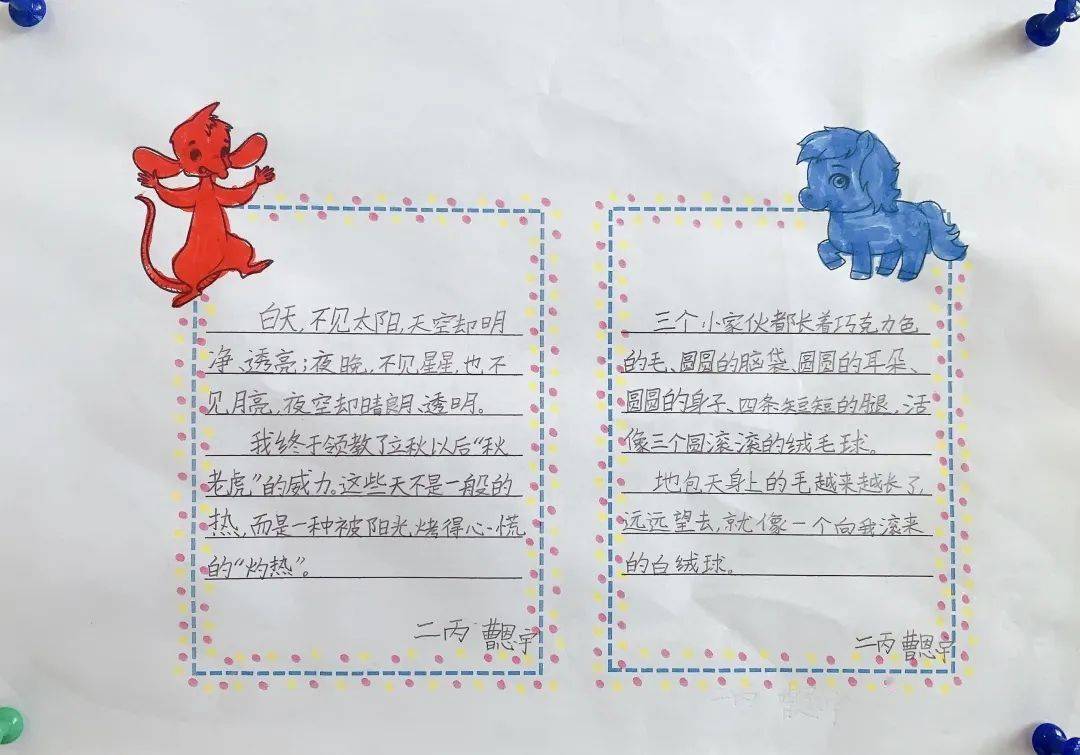 白天,不见太阳,天空却明
净、透亮;夜晚,不见星星,也不
见月亮,夜空却晴朗、透明。
我终于领教了立秋以后“秋
老虎”的威力。这些天不是一般的
热,而是一种被阳光,烤得心慌
的“灼热”。
二丙 曹恩宇
三个小家伙都长着巧克力色
的毛、圆圆的脑袋、圆圆的耳朵、
圆圆的身子、四条短短的腿,活
像三个圆滚滚的绒毛球。
地包天身上的毛越来越长了,
远远望去,就像一个向我滚来
的白绒球。
二丙 曹恩宇